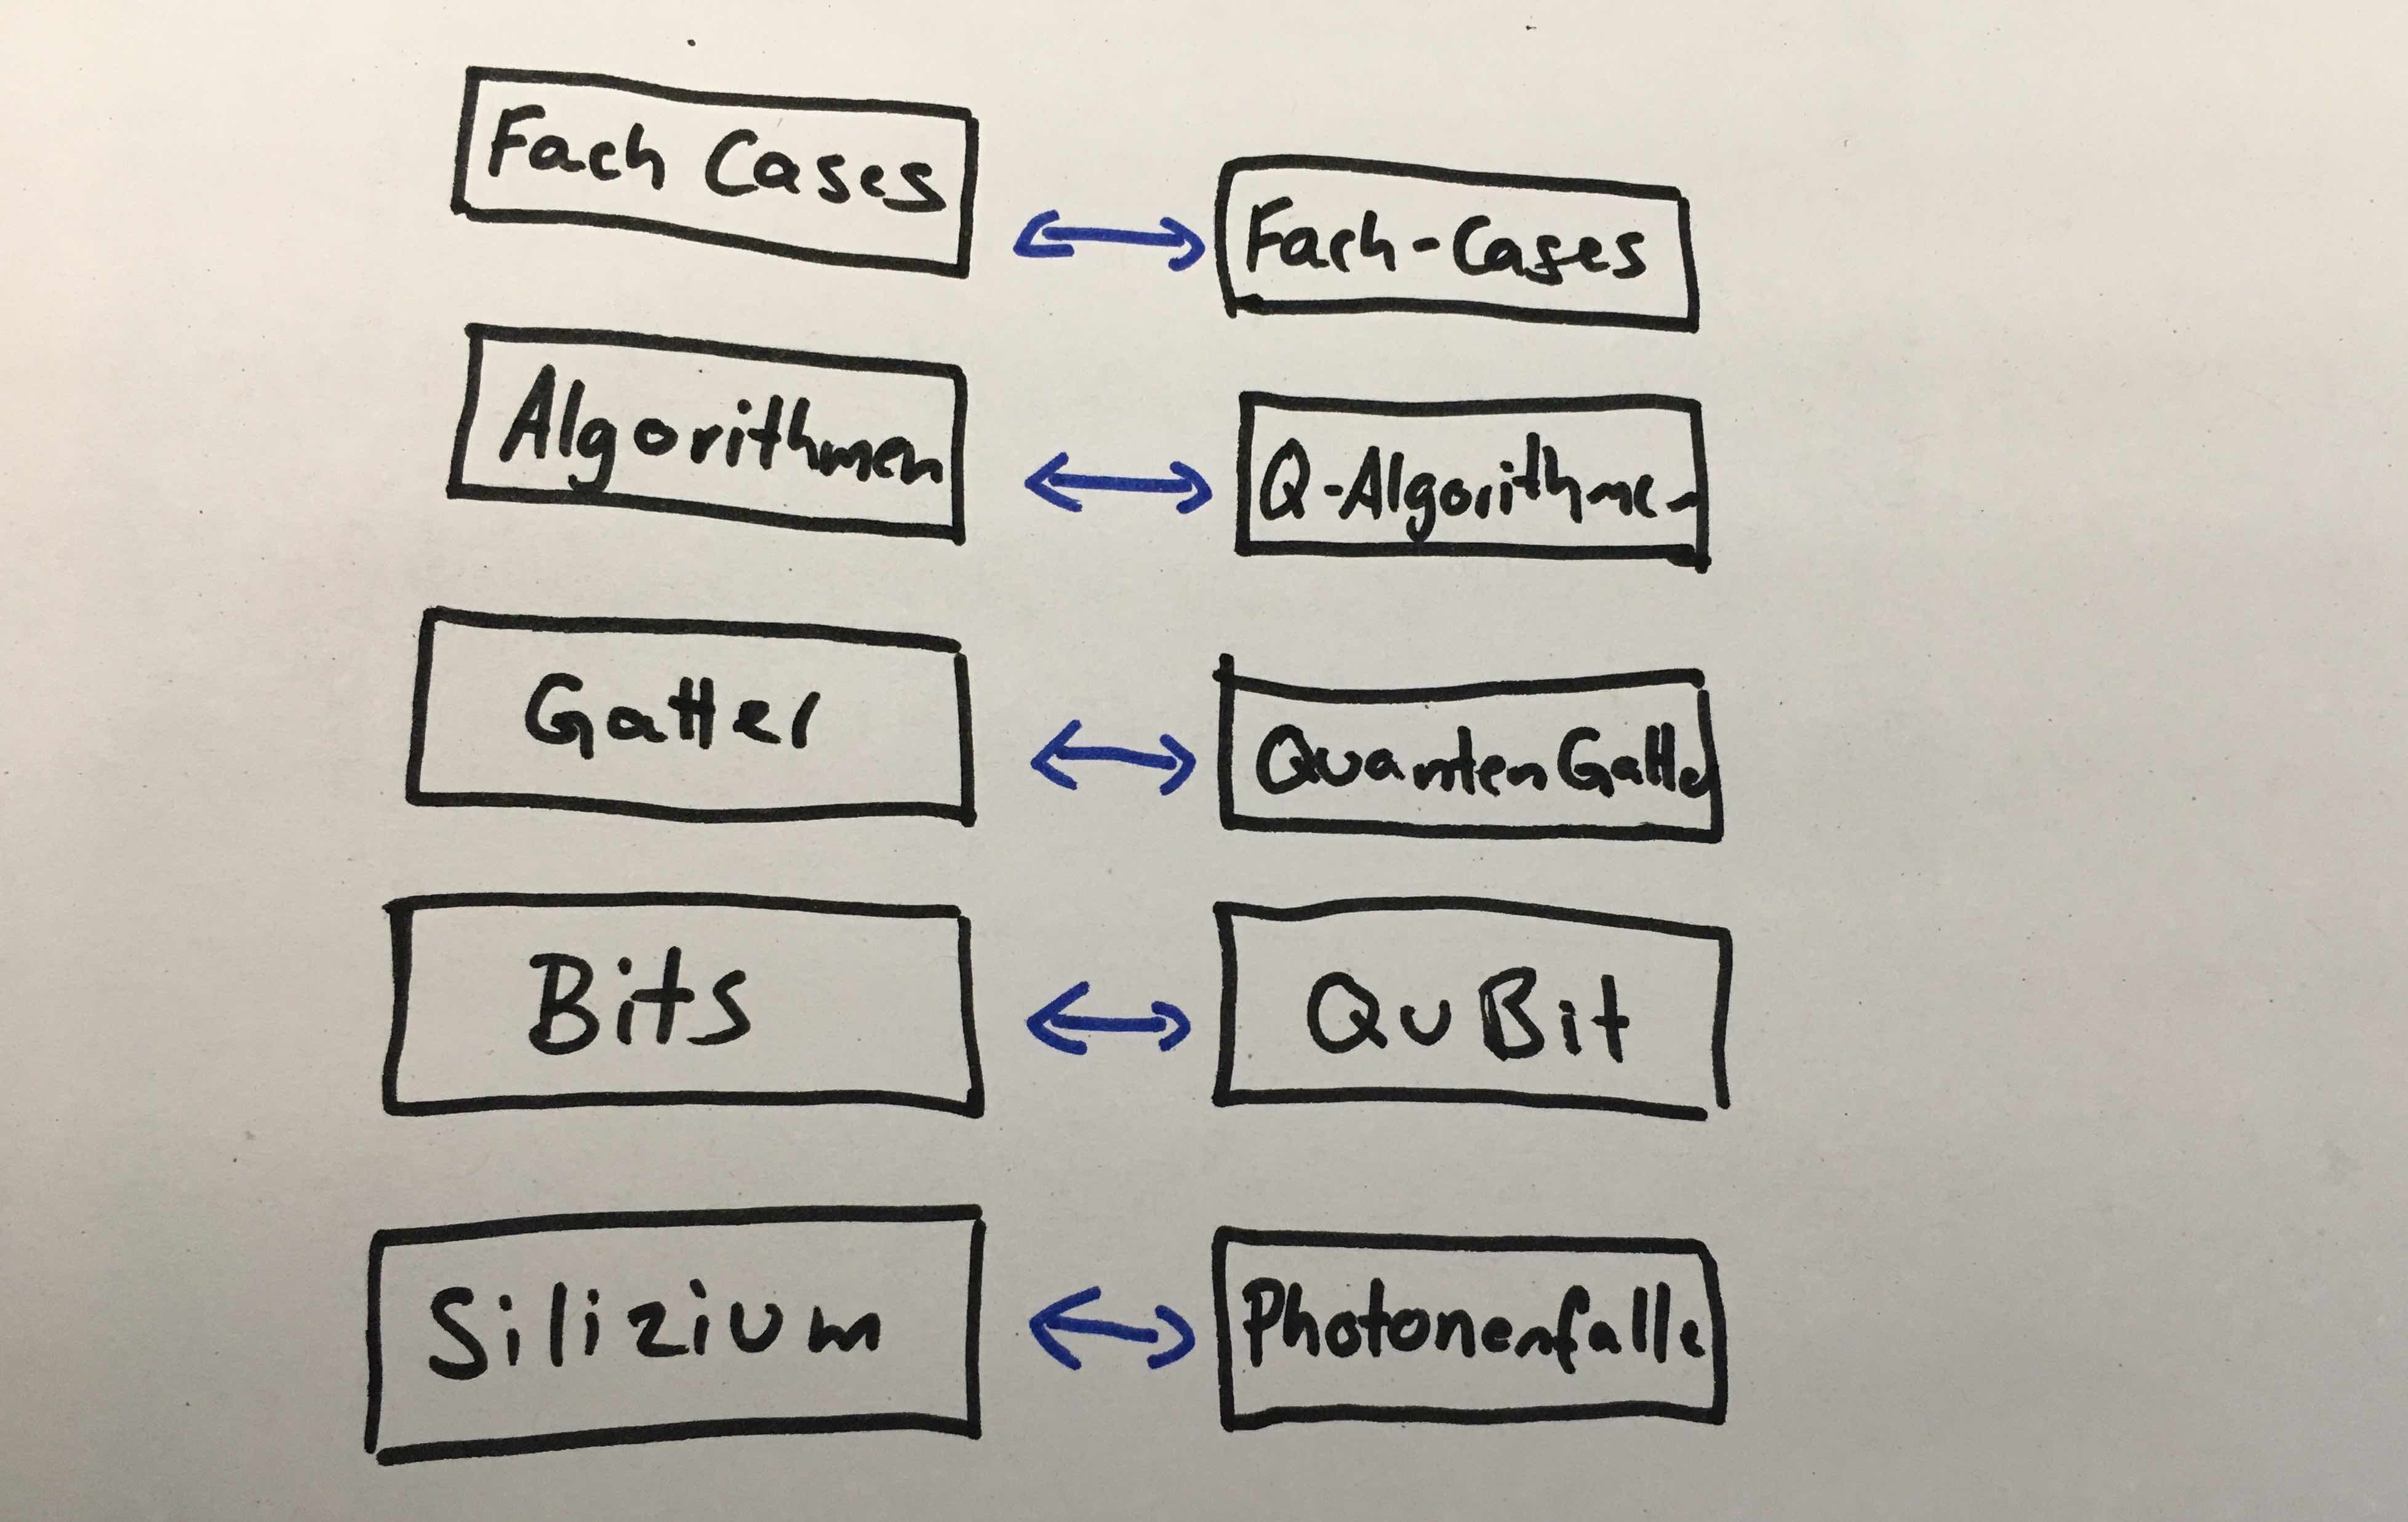 Fach Cases
Fach-Cases
Algorithmen
Q-Algorithmen
Gatter
QuantenGatter
Bits
QuBit
Silizium
Photonenfalle